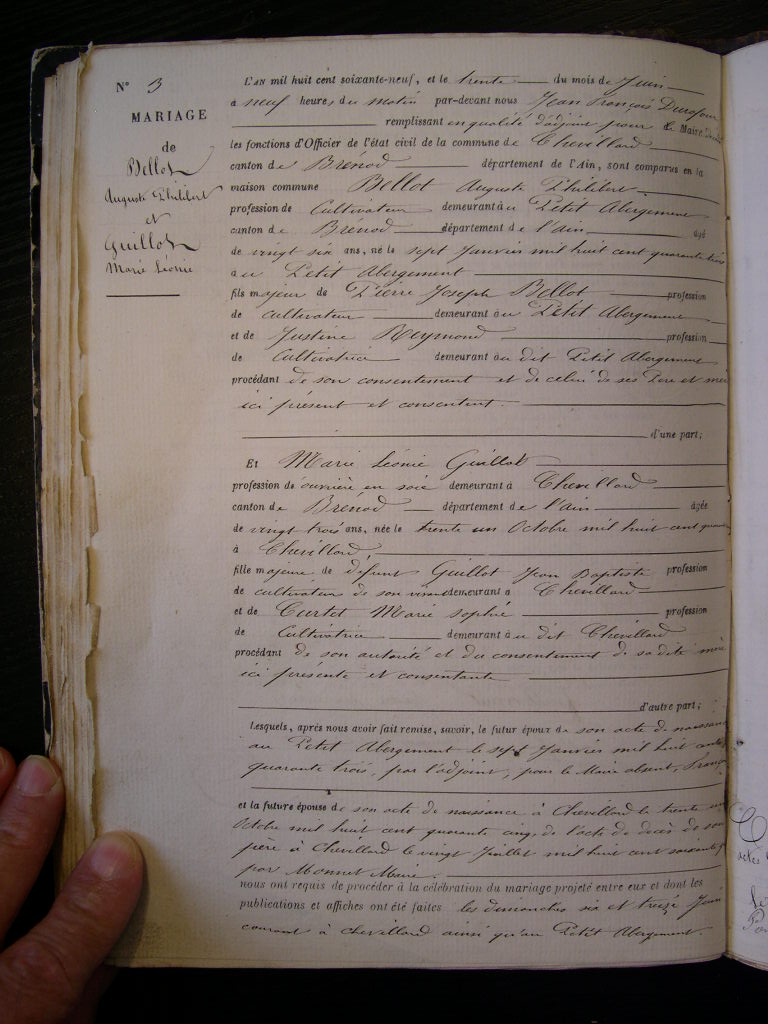 N° 3
MARIAGE
de
Bellot
Auguste Philibert
et
Guillot
Marie Léonie
L'AN mil huit cent soixante-neuf, et le trente du mois de Juin
à neuf heures du matin par-devant nous Jean François Durafour
remplissant en qualité d'adjoint pour le Maire
les fonctions d'Officier de l'état civil de la commune de Chevillard
canton de Brénod département de l'Ain, sont comparus en la
maison commune Bellot Auguste Philibert
profession de Cultivateur demeurant à u Petit Abergement
canton de Brénod département de l'ain âgé
de vingt six ans, né le sept Janvier mil huit cent quarante trois
à u Petit Abergement
fils majeur de Pierre Joseph Bellot profession
de Cultivateur demeurant à u Petit Abergement
et de Justine Reymond profession
de Cultivatrice demeurant à u dit Petit Abergement
procédant de son consentement et de celui de ses Père et mère
ici présent et consentent.
d'une part;
Et Marie Léonie Guillot
profession de ouvrière en soie demeurant à Chevillard
canton de Brénod département de l'ain âgée
de vingt trois ans, née le trente un Octobre mil huit cent
à Chevillard,
fille majeure de défunt Guillot Jean Baptiste profession
de cultivateur de son vivant demeurant à Chevillard
et de Curtet Marie Sophie profession
de Cultivatrice demeurant à u dit Chevillard
procédant de son autorité et du consentement de sa dite mère
ici présente et consentante
d'autre part;
Lesquels, après nous avoir fait remise, savoir, le futur époux de son acte de naissance
au Petit Abergement le sept Janvier mil huit cent
quarante trois, par l'adjoint, pour le Maire absent,
et la future épouse de son acte de naissance à Chevillard le trente un
Octobre mil huit cent quarante cinq, de l'acte de décès de son
père à Chevillard le vingt Juillet mil huit cent soixante
par Monnet Maire.
nous ont requis de procéder à la célébration du mariage projeté entre eux et dont les
publications et affiches ont été faites les dimanches six et treize Juin
courant à Chevillard ainsi qu'au Petit Abergement.